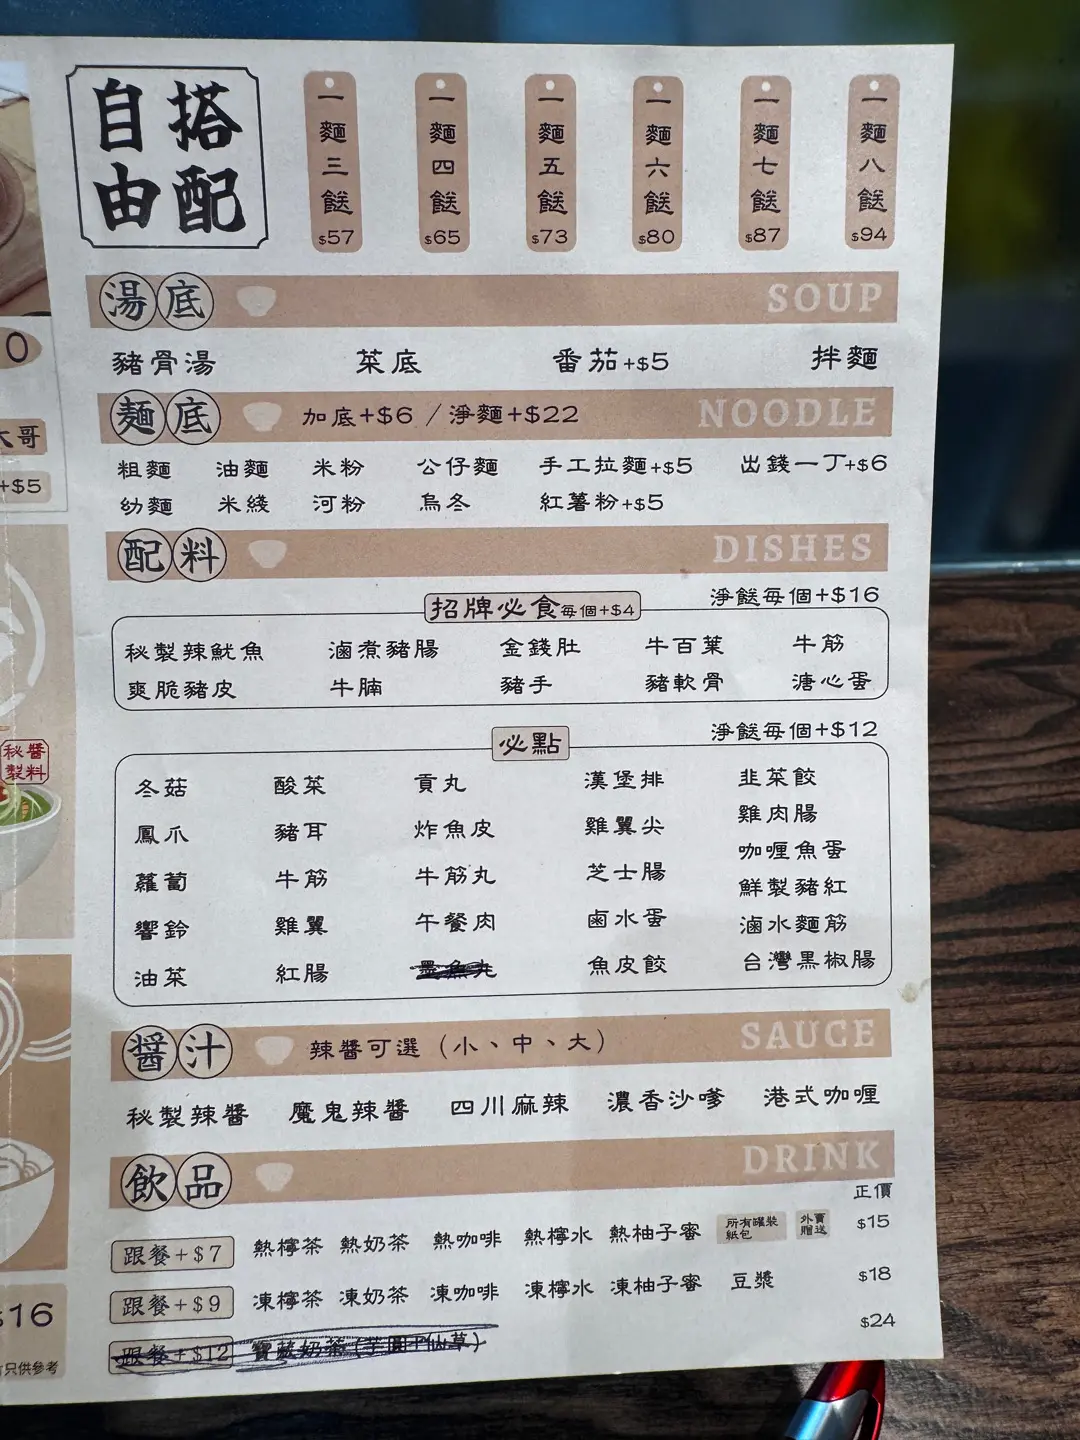 自搭
由配
一麵三餸 $57
一麵四餸 $65
一麵五餸 $73
一麵六餸 $80
一麵七餸 $87
一麵八餸 $94
湯底 SOUP
豬骨湯 菜底 番茄+$5 拌麵
麵底 加底+$6 / 淨麵+$22 NOODLE
粗麵 油麵 米粉 公仔麵 手工拉麵+$5 出錢一丁+$6
幼麵 米綫 河粉 烏冬 紅薯粉+$5
配料 DISHES
招牌必食每個+$4 淨餸每個+$16
秘製辣魷魚 滷煮豬腸 金錢肚 牛百葉 牛筋
爽脆豬皮 牛腩 豬手 豬軟骨 溏心蛋
必點 淨餸每個+$12
冬菇 酸菜 貢丸 漢堡排 韭菜餃
鳳爪 豬耳 炸魚皮 雞翼尖 雞肉腸
蘿蔔 牛筋 牛筋丸 芝士腸 咖喱魚蛋
響鈴 雞翼 午餐肉 鹵水蛋 鮮製豬紅
油菜 紅腸 墨魚丸 魚皮餃 滷水麵筋
台灣黑椒腸
醬汁 辣醬可選（小、中、大） SAUCE
秘製辣醬 魔鬼辣醬 四川麻辣 濃香沙嗲 港式咖喱
飲品 DRINK
正價
跟餐+$7 熱檸茶 熱奶茶 熱咖啡 熱檸水 熱柚子蜜 所有罐裝紙包 外賣贈送 $15
跟餐+$9 凍檸茶 凍奶茶 凍咖啡 凍檸水 凍柚子蜜 豆漿 $18
跟餐+$12 奶茶(芋圓+仙草) $24
0
大哥
+$5
秘醬
製料
$16
只供參考